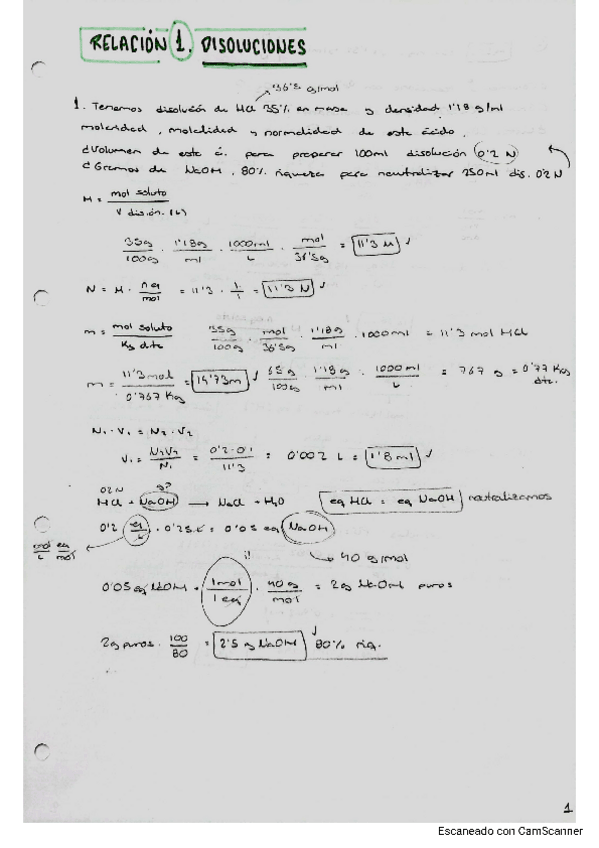 RELACIÓN 1. DISOLUCIONES
36'5 g/mol
1. Tenemos disolución de HCl 35% en masa y densidad 1'18 g/ml
molaridad, molalidad y normalidad de este ácido.
¿Volumen de este á. para preparar 100ml disolución 0'2 N
¿Gramos de NaOH, 80% riqueza para neutralizar 250ml dis. 0'2 N
M = mol soluto / V dision. (L)
35g/100g · 1'18g/ml · 1000ml/L · mol/36'5g = 11'3 M ✓
N = M · n eq/mol = 11'3 · 1/1 = 11'3 N ✓
m = mol soluto / Kg dte 35g/100g · mol/36'5g · 1'18g/ml · 1000ml = 11'3 mol HCl
m = 11'3 mol / 0'767 Kg = 14'73m ✓ 65g/100g · 1'18g/ml · 1000ml/L = 767 g = 0'77 Kg dte.
N₁ · V₁ = N₂ · V₂
V₁ = N₂V₂/N₁ = 0'2 · 0'1 / 11'3 = 0'002 L = 1'8 ml ✓
0'2 N g?
HCl + NaOH → NaCl + H₂O eq HCl = eq NaOH neutralizamos
0'2 eq/L · 0'25 L = 0'05 eq NaOH
mol/L eq/mol
40 g/mol
0'05 eq NaOH · 1mol/1eq · 40 g/mol = 2g NaOH puros
2g puros · 100/80 = 2'5 g NaOH ✓ 80% riq.
1
Escaneado con CamScanner